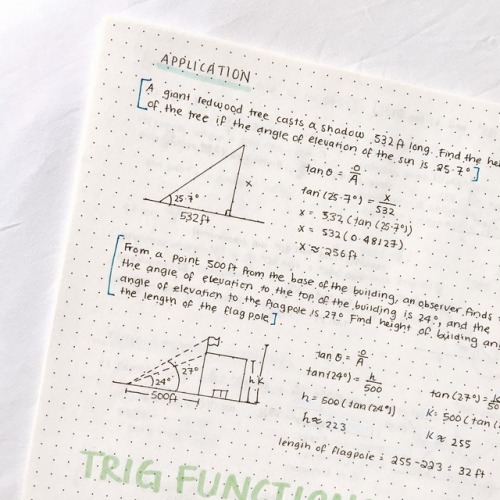 APPLICATION
A giant redwood tree casts a shadow 532 ft long. Find the
of the tree if the angle of elevation of the sun is 25.7°
x
25.7°
532 ft
tan θ = O/A
tan (25.7°) = x/532
x = 532 (tan (25.7°))
x = 532 (0.48127)
x ≈ 256 ft
From a point 500ft from the base of the building, an observer finds
the angle of elevation to the top of the building is 24°, and the
angle of elevation to the flagpole is 27° Find height of building
the length of the flag pole
27°
24°
h k
500ft
tan θ = O/A
tan (24°) = h/500
h = 500 (tan (24°))
h ≈ 223
tan (27°) =
k = 500 (tan
k ≈ 255
length of flagpole = 255 - 223 = 32 ft
TRIG